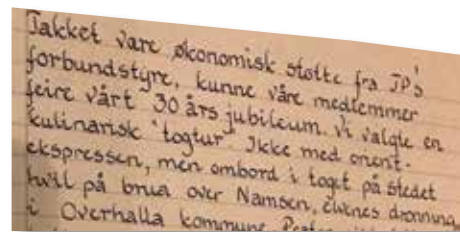 Takket være økonomisk støtte fra JP's
forbundstyre, kunne våre medlemmer
feire vårt 30 års jubileum. Vi valgte en
kulinarisk "togtur" Ikke med orient-
ekspressen, men ombord i toget på stedet
hvil på brua over Namsen, elvenes dronning,
i Overhalla kommune